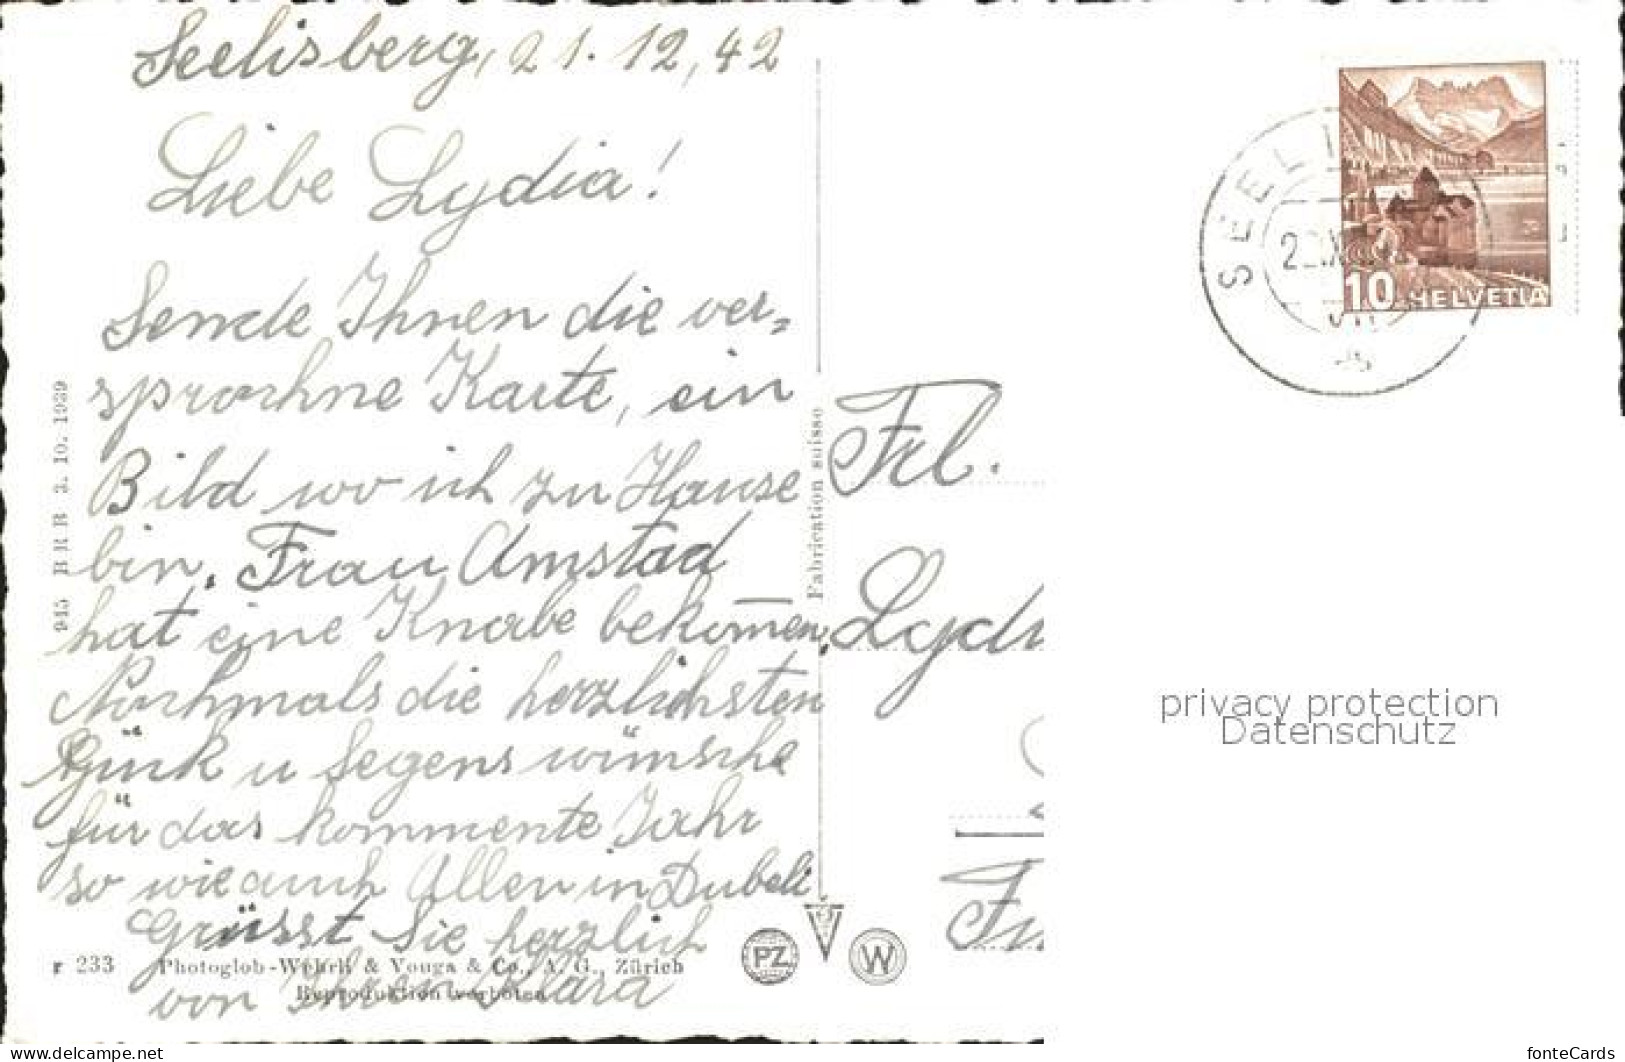 Seelisberg, 21. 12, 42
Liebe Lydia!
Sende Ihnen die ver=
sprochne Karte, ein
Bild wo ich zu Hause
bin. Frau Amstad
hat eine Knabe bekom̅en,
Nochmals die herzlichsten
Glück u Segens wünsche
für das kommente Jahr
so wie auch Allen in Dubeli
Grüsst Sie herzlich
von Ihnen Klara
945 BRB 3. 10. 1939
r 233 Photoglob-Wehrli & Vouga & Co., A. G., Zürich
Reproduktion verboten
Fabrication suisse
PZ
W
SEELI
10 HELVETIA
Frl.
Lydi
privacy protection
Datenschutz
www.delcampe.net
fonteCards